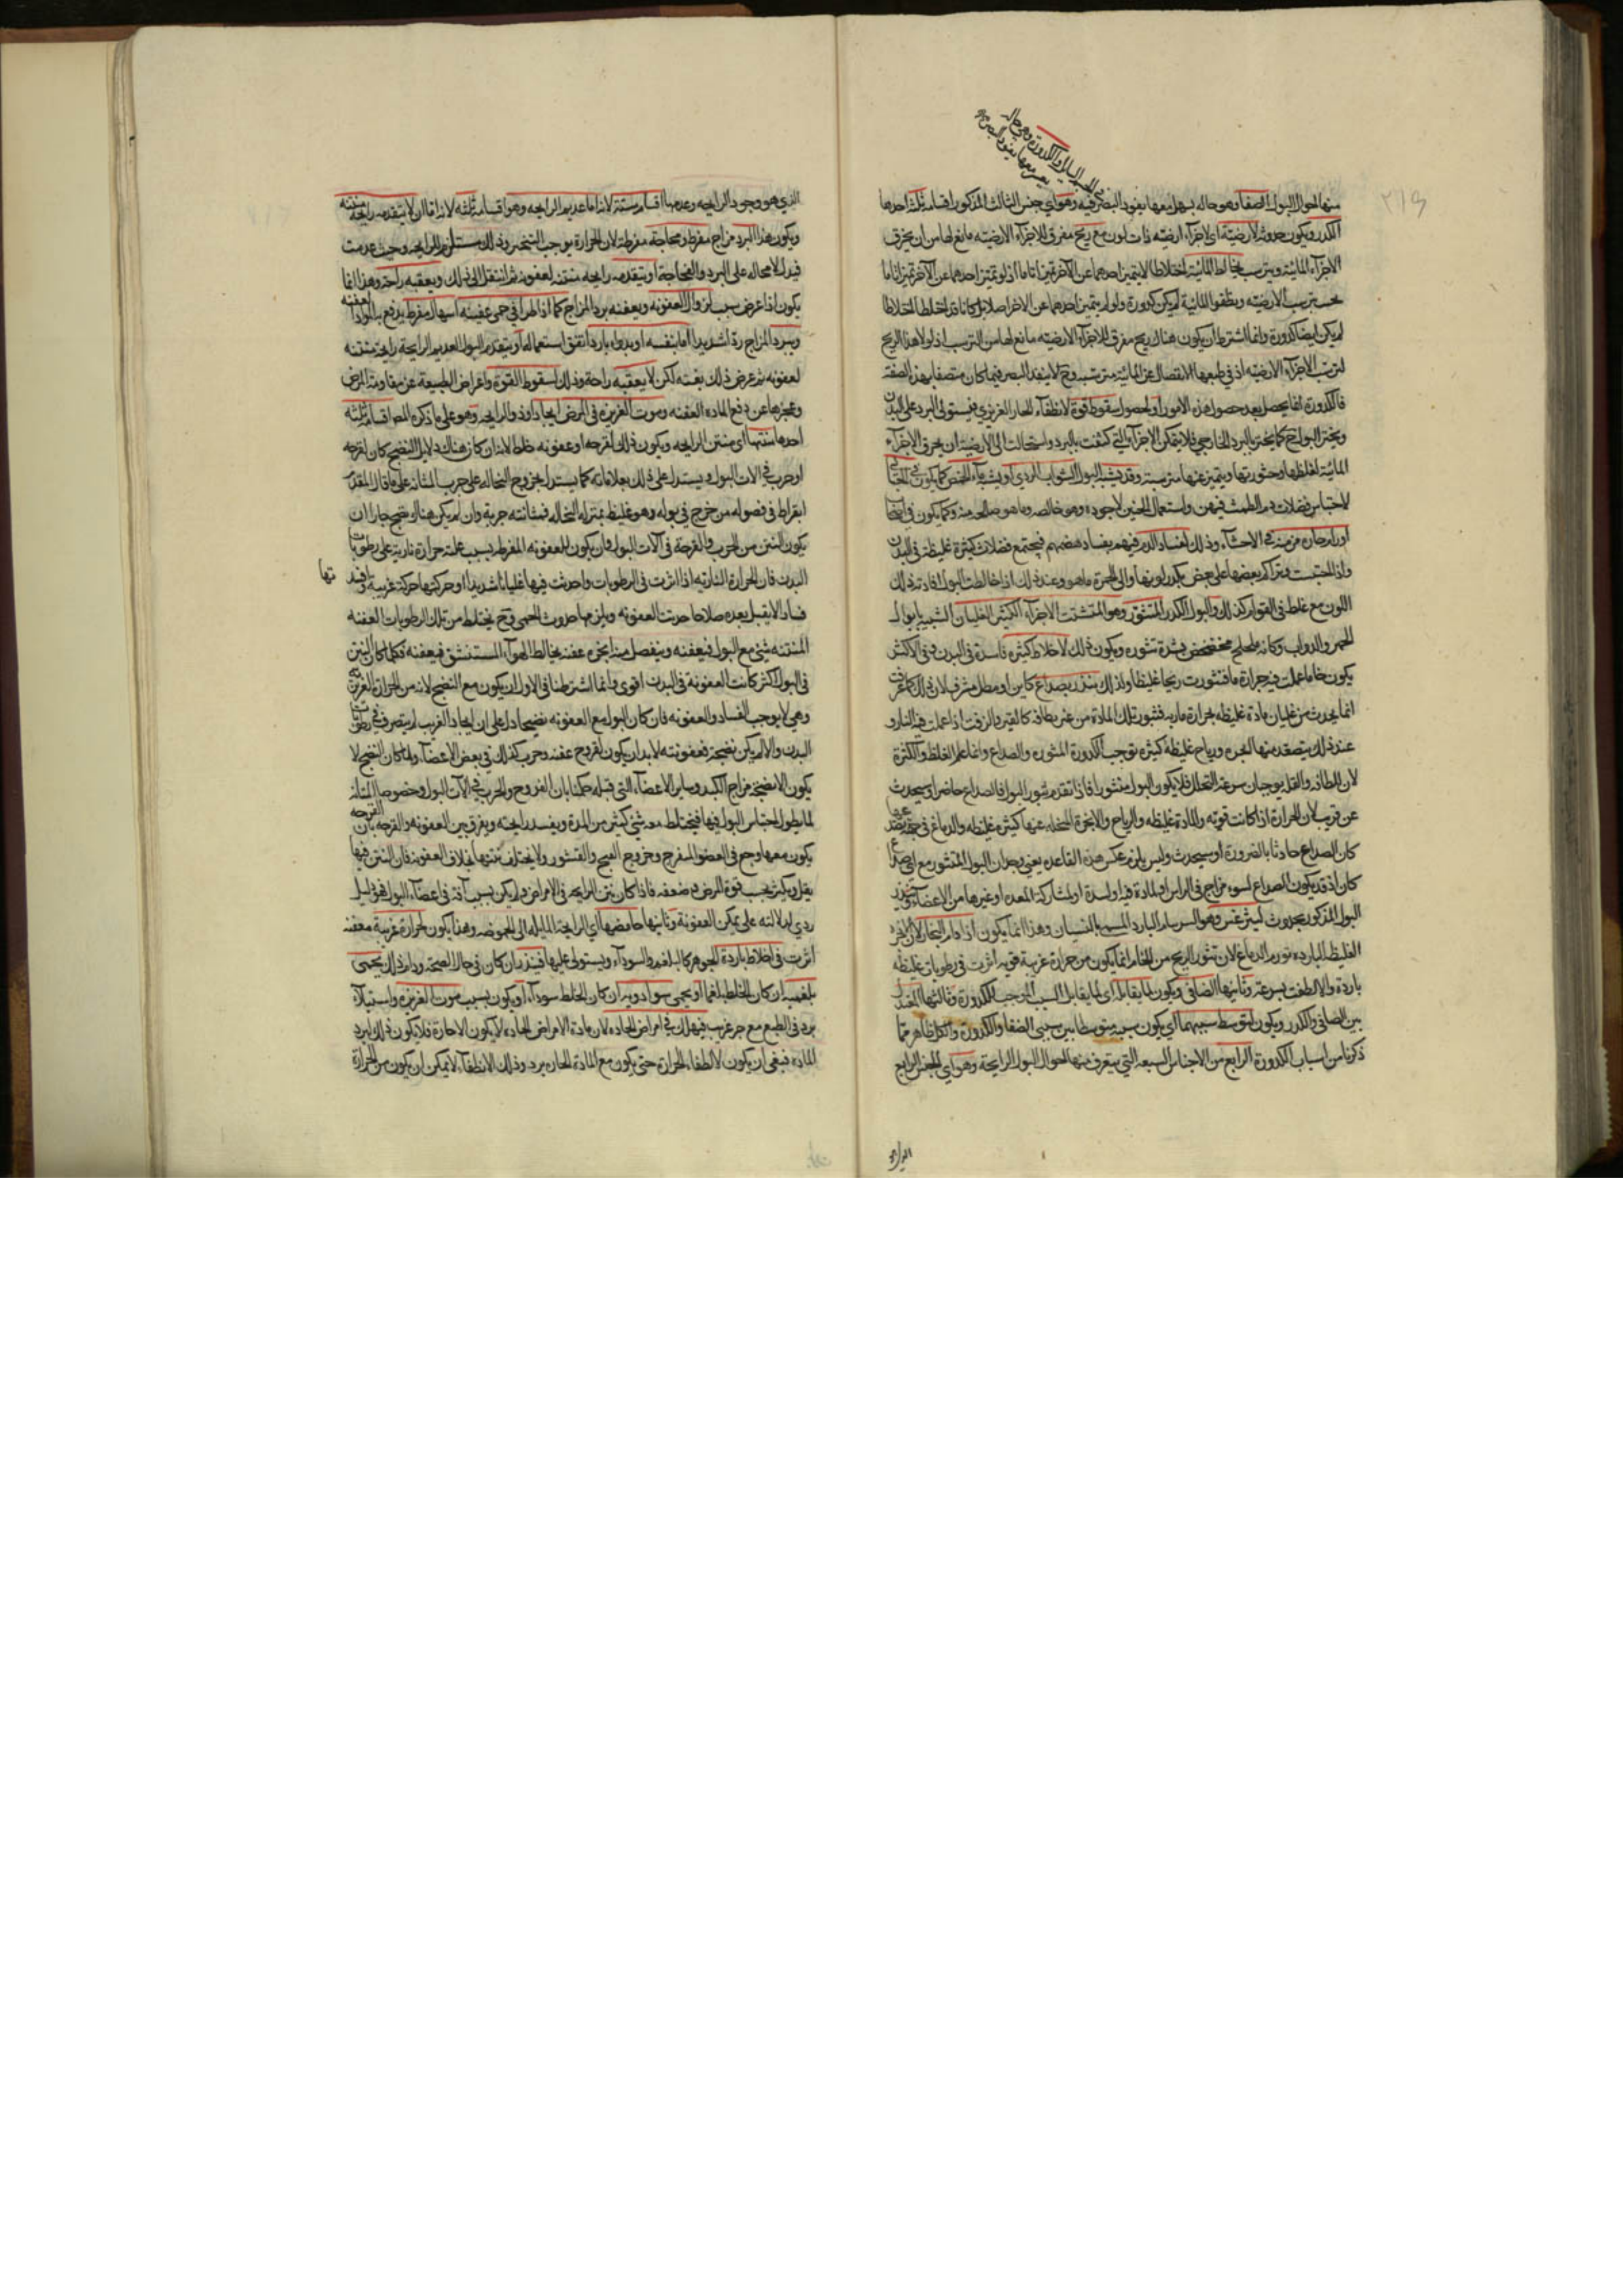 منها احوال البول الصفا وهو حاله يسهل معها نفوذ البصر فيه وهو اي جنس الثالث المذكور اقسامه ثلثة احدها
الكدر ويكون حدوثه لارضيته اي لاجزاء ارضيته ذات لون مع ريح مفرق للاجزاء الارضيته مانع لها من ان يخرق
الاجزاء المائية ويترسب يخالط المائية اختلاطا لا يتميز احدهما عن الآخر تميزا تاما اذ لو تميز احدهما عن الآخر تميزا تاما
بحسب ترسب الارضيته ويطفو المائية لم يكن كدورة ولو لم يتميز احدهما عن الاخر اصلا بل كانا قد اختلطا اختلاطا
لم يكن ايضا كدورة وانما اشترط ان يكون هناك ريح مفرق للاجزاء الارضيته مانع لها من الترسب اذ لولا هذا الريح
لترسب الاجزاء الارضيته اذ في طبعها الانفصال عن المائية مترسبه وح لا ينفذ البصر فيما كان متصفا بهذه الصفة
فالكدورة انما يحصل بعد حصول هذه الامور او لحصول سقوط قوة لانطفاء الحار الغريزي فيستولي البرد على البدن
ويخثر البول ح كما يخثر بالبرد الخارجي فلا يتمكن الاجزاء التي كثفت بالبرد واستحالت الى الارضية ان يخرق الاجزاء
المائية لغلظها وخثورتها ويتميز عنها مترسبة وقد يشبه البول الشراب الردي او يشبه ماء الحمص كما يكون في الحبالى
لاحتباس فضلات دم الطمث فيهن واستعمال الجنين لاجوده وهو خالصه وما هو صالح منه وكما يكون في اصحاب
اورام حارة مزمنة في الاحشاء وذلك لفساد الدم فيهم بفساد هضمهم فيجتمع فضلات كثيرة غليظة في البدن
واذا احتبست وتراكم بعضها على بعض يكدر لونها والى الحمرة ما هو وعند ذلك اذا خالطت البول افادته ذلك
اللون مع غلظ في القوام كذلك والبول الكدر المتثور وهو المتشتت الاجزاء الكثير الغليان الشبيه بابوال
الحمير والدواب وكانه ملخلخ مخضخض لشدة تثوره ويكون ذلك لاخلاط كثيرة فاسدة في البدن وفي الاكثر
يكون خاما عملت فيه حرارة ما فتثورت ريحا غليظا ولذلك ينذر بصداع كاين او مطل مشرف لان ذلك كما عرفت
انما يحدث من غليان مادة غليظة بحرارة ماريه فتثور تلك المادة من غير لطافه كالقير والزفت اذا عملت فيه النار و
عند ذلك يتصعد منها ابخرة ورياح غليظة كثيرة توجب الكدورة المتثوره والصداع وانما علم الغلظ والكثرة
لان اللطافه والقله يوجبان سرعة التحلل فلا يكون البول متثورا فاذا تقدم تثور البول فالصداع حاضر او سيحدث
عن قريب لان الحرارة اذا كانت قوية والمادة غليظه والرياح والابخرة المتحلله عنها كثيرة غليظه والدماغ في جهة تصعد
كان الصداع حادثا بالضرورة او سيحدث وليس يلزم عكس هذه القاعدة يعني وجدان البول المتثور مع اي صداع
كان اذ قد يكون الصداع لسوء مزاج في الراس او لمادة فيه او لسدة او لمشاركة المعده او غيرها من الاعضاء وينذر
البول المذكور بحدوث ليثرغس وهو السرسام البارد المسمى بالنسيان وهذا انما يكون اذا دام البخار لان الابخره
الغليظة الباردة تورم الدماغ لان تثور الريح من الخام انما يكون من حرارة غريبة قوية اثرت في رطوبات غليظه
باردة والا لطفت بسرعة وثانيها الصافي ويكون لما يقابله اي لما يقابل السبب الموجب للكدورة وثالثها المعتدل
بين الصافي والكدر ويكون لتوسط سببهما اي يكون سببه متوسطا بين سببي الصفا والكدورة والكل ظاهر مما
ذكرنا من اسباب الكدورة الرابع من الاجناس السبعه التي يتعرف منها احوال البول الرايحة وهو اي الجنس الرابع
الذي هو وجود الرايحه وعدمها اقسامه ستة لانه اما عديم الرايحه وهو اقسامه ثلثه لانه اما ان لا يتقدمه رايحة منتنه
ويكون هذا البرد مزاج مفرط وفجاجة مفرطة لان الحرارة يوجب التبخير وذلك مستلزم للرايحه وحيث عدمت
فيدل لا محاله على البرد والفجاجة او يتقدمه رايحه منتنه لعفونه ثم انتقل الى ذلك ويعقبه راحة وهذا انما
يكون اذا عرض سبب لزوال العفونه ويعقبه برد المزاج كما اذا طرا في حمى عفنيه اسهال مفرط يدفع به المواد العفنه
ويبرد المزاج بردا شديدا اما بنفسه او بدواء بارد اتفق استعماله او يتقدم البول العديم الرايحة رايحة منتنه
لعفونه ثم عرض ذلك بغتة لكن لا يعقبه راحة وذلك لسقوط القوة واعراض الطبيعة عن مقاومة المرض
وعجزها عن دفع المادة العفنه وموت الغريزه في المرض الحاد او ذو الرايحه وهو على ما ذكره المص اقسامه ثلثه
احدها منتنها اي منتن الرايحه ويكون ذلك لقرحه او عفونه خلط لانه ان كان هناك دلايل النضج كان لقرحه
او جرب في الات البول ويستدل على ذلك بعلاماته كما يستدل بخروج النخاله على جرب المثانه على ما قال المقدم
ابقراط في فصوله من خرج في بوله وهو غليظ بمنزله النخاله فمثانته جربة وان لم يكن هناك نضج جاز ان
يكون النتن من الجرب والقرحة في آلات البول وان يكون للعفونه المفرطه بسبب عمله حرارة نارية على رطوبات
البدن فان الحرارة الناريه اذا اثرت في الرطوبات واحدثت فيها غليانا شديدا او حركتها حركة غريبة وافسدتها
فسادا لا يقبل بعده صلاحا حدثت العفونه ويلزمها حدوث الحمى وح يختلط من تلك الرطوبات العفنه
المنتنه شي مع البول فيعفنه وينفصل منه ابخرة عفنه يخالط الهواء المستنشق فيعفنه فكلما كان النتن
في البول اكثر كانت العفونة في البدن اقوى وانما اشترطنا في الاول ان يكون مع النضج لانه من الحرارة الغريزية
وهي لا يوجب الفساد والعفونه فان كان البول مع العفونه نضيجا دل على ان الحار الغريب لم يتصرف في رطوبات
البدن والا لم يكن نضيجة فعفونته لا بد ان يكون لقروح عفنه وجرب كذلك في بعض الاعضاء ولما كان النضج لا
يكون الا لصحة مزاج الكبد وساير الاعضاء التي قبله حكمنا بان القروح والجرب في آلات البول وخصوصا المثانة
لما يطول احتباس البول فيها فيختلط معه شي كثير من المدة ويفسد رايحته ويفرق بين العفونه والقرحه بان القرحه
يكون معها وجع في العضو المقرح وخروج القيح والقشور ولا يختلف نتنها بخلاف العفونه فان النتن فيها
يقل ويكثر بحسب قوة المرض وضعفه فاذا كان نتن الرايحه في الامراض ولم يكن بسبب آفة في اعضاء البول فهو دليل
ردي لدلالته على تمكن العفونة وثانيها حامضها اي الرايحة المايله الى الحموضه وهذا يكون لحرارة غريبة معفنه
اثرت في اخلاط باردة الجوهر كالبلغم والسوداء ويستولي عليها فينذر ان كان في حال الصحة ودام ذلك بحمى
بلغمية ان كان الخلط بلغما او بحمى سوداويه ان كان الخلط سوداء او يكون بسبب موت الغريزه واستيلاء
برد في الطبع مع حر غريب فيهلك في امراض الحاده لان مادة الامراض الحاده لا يكون الا حارة فلا يكون ذلك لبرد
المادة فبقي ان يكون لانطفاء الحرارة حتى يكون مع المادة الحاره برد وذلك الانطفاء لا يمكن ان يكون من الحرارة